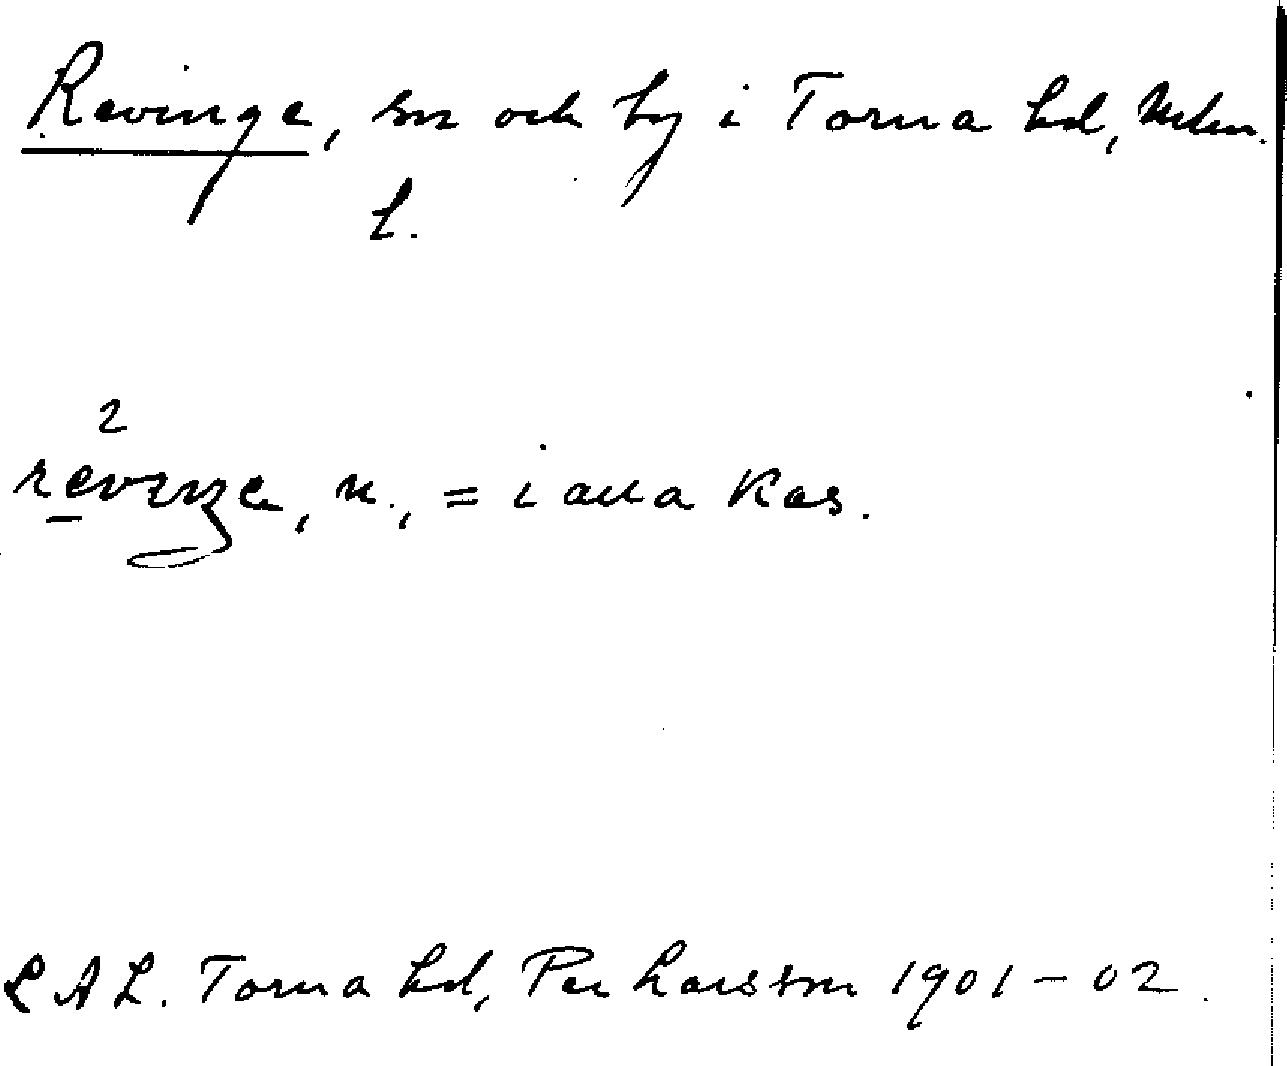 Revinge, sn och by i Torna hd, Mlm.
l.
2
revinge, n., = i alla kas.
LAL. Torna hd, Per Larsson 1901–02.